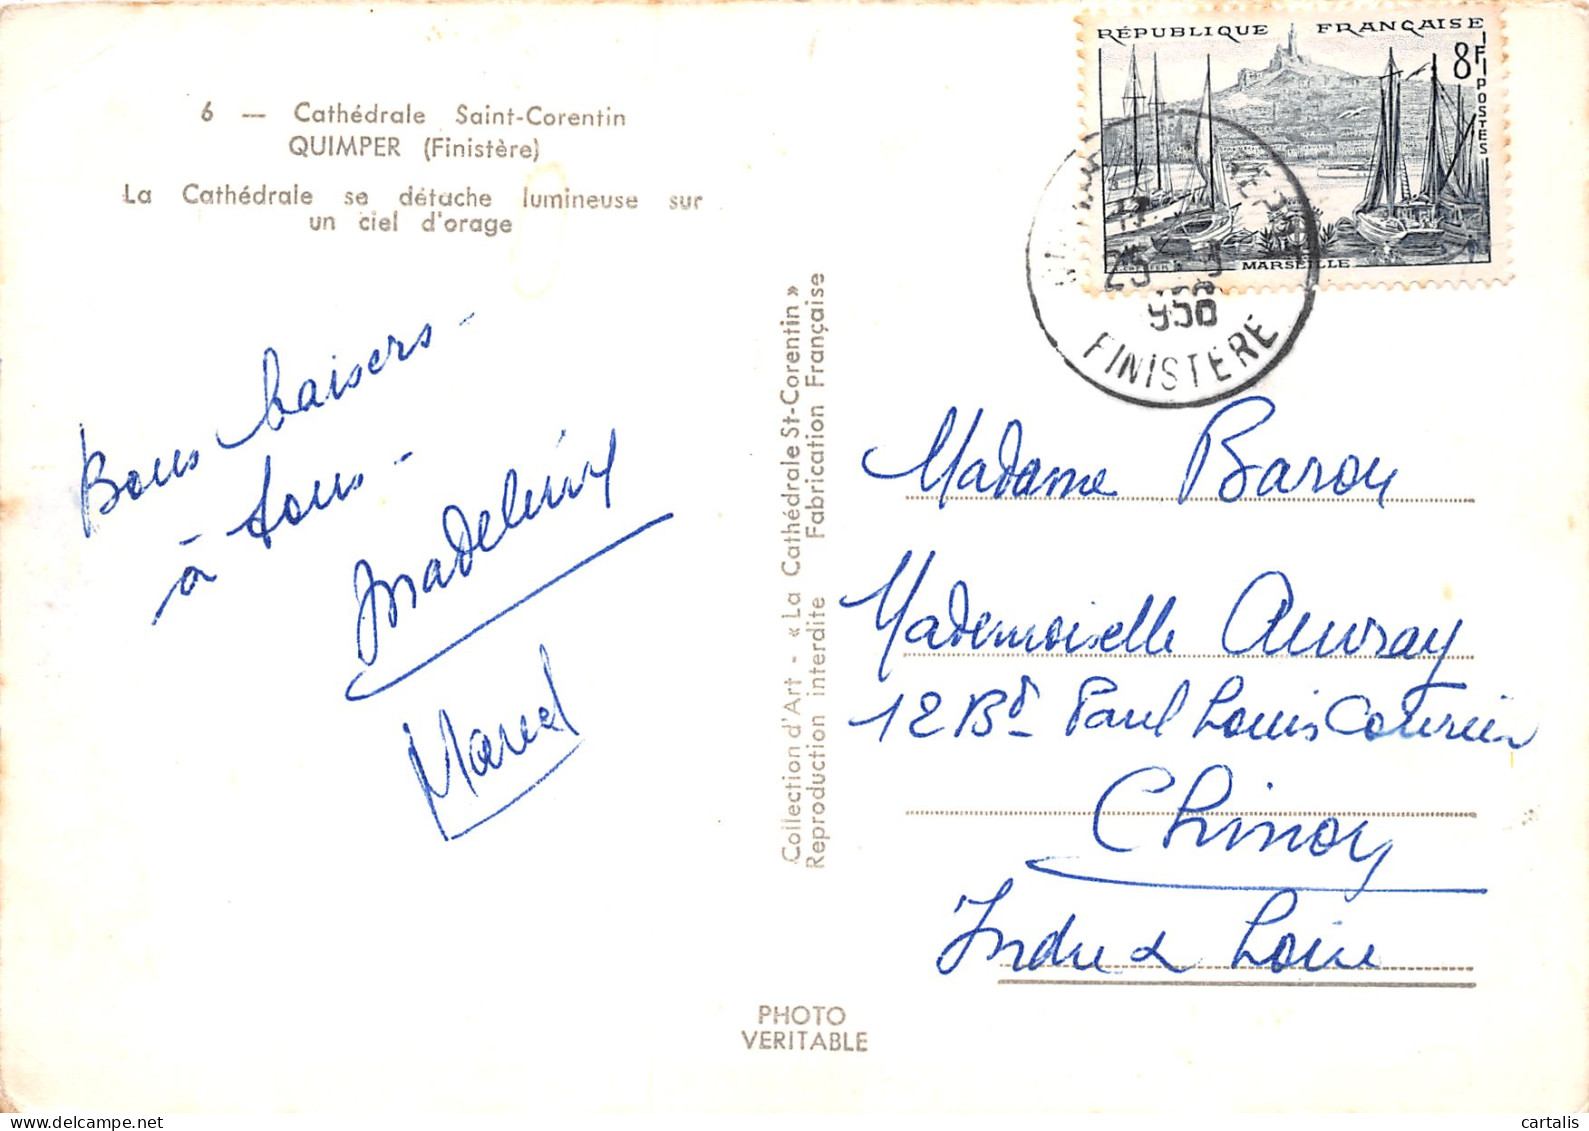 6 — Cathédrale Saint-Corentin
QUIMPER (Finistère)
La Cathédrale se détache lumineuse sur
un ciel d'orage
Bons baisers -
à tous -
Madeleine
Marcel
Collection d'Art - « La Cathédrale St-Corentin »
Reproduction interdite Fabrication Française
RÉPUBLIQUE FRANÇAISE
8F
POSTES
MARSEILLE
25
958
FINISTERE
Madame Baron
Mademoiselle Auvray
12 Bd Paul Louis Courier
Chinon
Indre & Loire
PHOTO
VERITABLE
cartalis